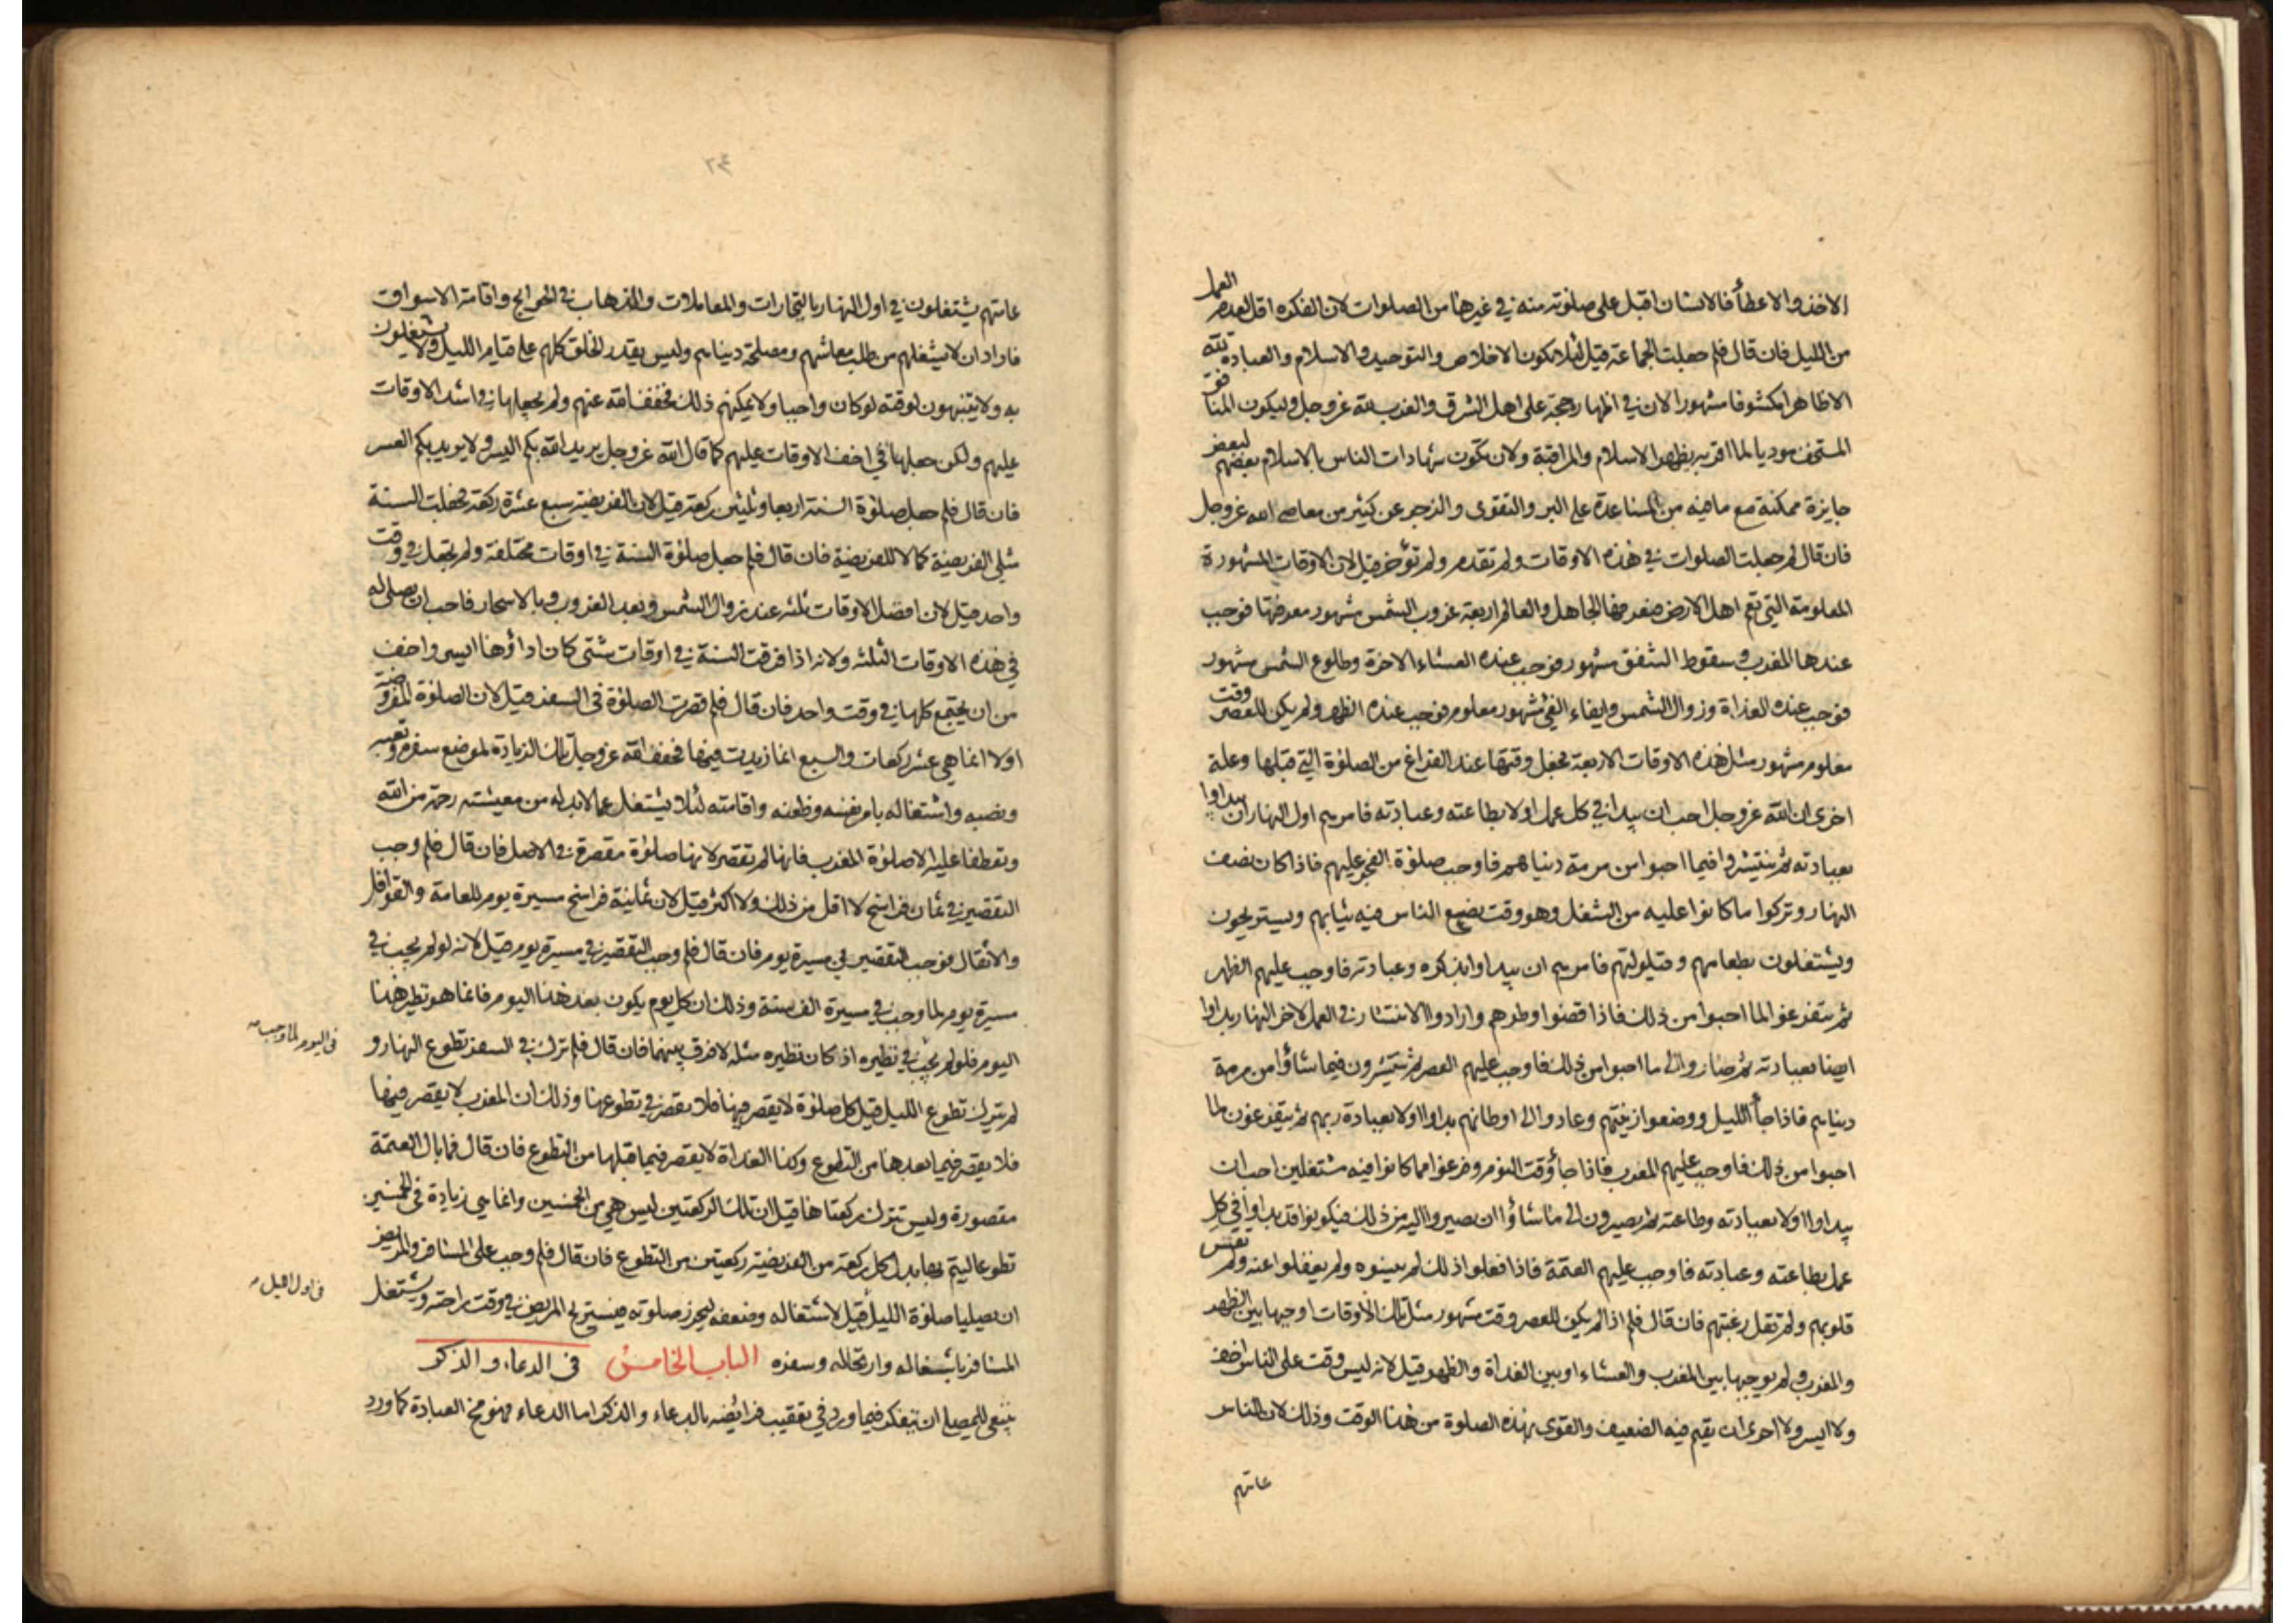 الاخذ والاعطاء فالانسان اقبل على صلوته منه في غيرها من الصلوات لان الفكرة اقل لعدم العمل
من الليل فان قال فلم جعلت الجماعة قيل لئلا يكون الاخلاص والتوحيد والاسلام والعبادة لله
الا ظاهرا مكشوفا مشهورا لان في اظهاره حجة على اهل الشرق والغرب لله عز وجل وليكون المنافق
المستخف موديا لما اقر به بظهر الاسلام والمراقبة ولان تكون شهادات الناس بالاسلام بعضهم لبعض
جايزة ممكنة مع ما فيه من المساعدة على البر والتقوى والزجر عن كثير من معاصي الله عز وجل
فان قال لم جعلت الصلوات في هذه الاوقات ولم تقدم ولم تؤخر قيل لان الاوقات المشهورة
المعلومة التي تعم اهل الارض فيعرفها الجاهل والعالم اربعة غروب الشمس مشهور معرفتها فوجب
عندها المغرب وسقوط الشفق مشهور فوجب عنده العشاء الاخرة وطلوع الشمس مشهور
فوجب عنده الغداة وزوال الشمس وايفاء الفئ مشهور معلوم فوجب عنده الظهر ولم يكن للعصر وقت
معلوم مشهور مثل هذه الاوقات الاربعة فجعل وقتها عند الفراغ من الصلوة التي قبلها وعلة
اخرى ان الله عز وجل احب ان يبدا في كل عمل اولا بطاعته وعبادته فامرهم اول النهار ان يبداوا
بعبادته ثم ينتشروا فيما احبوا من مرمة دنياهم فاوجب صلوة الفجر عليهم فاذا كان نصف
النهار وتركوا ما كانوا عليه من الشغل وهو وقت يضع الناس فيه ثيابهم ويستريحون
ويشتغلون بطعامهم وقيلولتهم فامرهم ان يبداوا بذكره وعبادته فاوجب عليهم الظهر
ثم يتفرغوا لما احبوا من ذلك فاذا قضوا وطرهم وارادوا الانتشار في العمل لاخر النهار بداوا
ايضا بعبادته ثم صاروا الى ما احبوا من ذلك فاوجب عليهم العصر ثم ينتشرون فيما شاؤا من مرمة
دنياهم فاذا جاء الليل ووضعوا زينتهم وعادوا الى اوطانهم بداوا اولا بعبادة ربهم ثم يتفرغون لما
احبوا من ذلك فاوجب عليهم المغرب فاذا جاء وقت النوم وفرغوا مما كانوا فيه مشتغلين احب ان
يبداوا اولا بعبادته وطاعته ثم يصيرون الى ما شاؤا ان يصيروا اليه من ذلك فيكونوا قد بداوا في كل
عمل بطاعته وعبادته فاوجب عليهم العتمة فاذا فعلوا ذلك لم ينسوه ولم يغفلوا عنه ولم تقس
قلوبهم ولم تقل رغبتهم فان قال فلم اذا لم يكن للعصر وقت مشهور مثل تلك الاوقات اوجبها بين الظهر
والمغرب ولم يوجبها بين المغرب والعشاء او بين الغداة والظهر قيل لانه ليس وقت على الناس اخف
ولا ايسر ولا احرى ان يقم فيه الضعيف والقوى بهذه الصلوة من هذا الوقت وذلك لان الناس
عامتهم
٢٤
عامتهم يشتغلون في اول النهار بالتجارات والمعاملات والذهاب في الحوايج واقامة الاسواق
فاراد ان لا يشغلهم من طلب معاشهم ومصلحة دنياهم وليس يقدر الخلق كلهم على قيام الليل ولا يشغلون
به ولا يتنبهون لوقته لو كان واجبا ولا يمكنهم ذلك فخفف الله عنهم ولم يجعلها في اشد الاوقات
عليهم ولكن جعلها في اخف الاوقات عليهم كما قال الله عز وجل يريد الله بكم اليسر ولا يريد بكم العسر
فان قال فلم جعل صلوة السنة اربعا وثلثين ركعة قيل لان الفريضة سبع عشرة ركعة فجعلت السنة
مثلي الفريضة كمالا للفريضة فان قال فلم جعل صلوة السنة في اوقات مختلفة ولم تجعل في وقت
واحد قيل لان افضل الاوقات ثلثه عند زوال الشمس وبعد الغروب وبالاسحار فاحب ان يصلى له
في هذه الاوقات الثلثه ولانه اذا فرقت السنة في اوقات شتى كان اداؤها ايسر واخف
من ان يجتمع كلها في وقت واحد فان قال فلم قصرت الصلوة في السفر قيل لان الصلوة المفروضة
اولا انما هي عشر ركعات والسبع انما زيدت فيها فخفف الله عز وجل تلك الزيادة لموضع سفره وتعبه
ونصبه واشتغاله بامر نفسه وظعنه واقامته لئلا يشتغل عما لا بد له من معيشته رحمة من الله
وتعطفا عليه الا صلوة المغرب فانها لم تقصر لانها صلوة مقصرة في الاصل فان قال فلم وجب
التقصير في ثمان فراسخ لا اقل من ذلك ولا اكثر قيل لان ثمانية فراسخ مسيرة يوم للعامة والقوافل
والاثقال فوجب التقصير في مسيرة يوم فان قال فلم وجب التقصير في مسيرة يوم قيل لانه لو لم يجب في
مسيرة يوم لما وجب في مسيرة الف سنة وذلك ان كل يوم يكون بعد هذا اليوم فانما هو نظير هذا
اليوم فلو لم يجب في نظيره اذ كان نظيره مثله لا فرق بينهما فان قال فلم ترك في السفر تطوع النهار و
في اليوم لما وجب
لم يترك تطوع الليل قيل كل صلوة لا يقصر فيها فلا يقصر في تطوعها وذلك ان المغرب لا يقصر فيها
فلا يقصر فيما بعدها من التطوع وكذا الغداة لا يقصر فيما قبلها من التطوع فان قال فما بال العتمة
مقصورة وليس تترك ركعتاها قيل ان تلك الركعتين ليس هي من الخمسين وانما هي زيادة في الخمسين
تطوعا ليتم بها بدل كل ركعة من الفريضة ركعتين من التطوع فان قال فلم وجب على المسافر والمريض
ان يصليا صلوة الليل قيل لاشتغاله وضعفه ليحرز صلوته فيستريح المريض في وقت راحته ويشتغل
في اول الليل
المسافر باشغاله وارتحاله وسفره الباب الخامس في الدعاء والذكر
ينبغي للمصلي ان يتفكر فيما ورد في تعقيب فرائضه بالدعاء والذكر اما الدعاء فهو مخ العبادة كما ورد